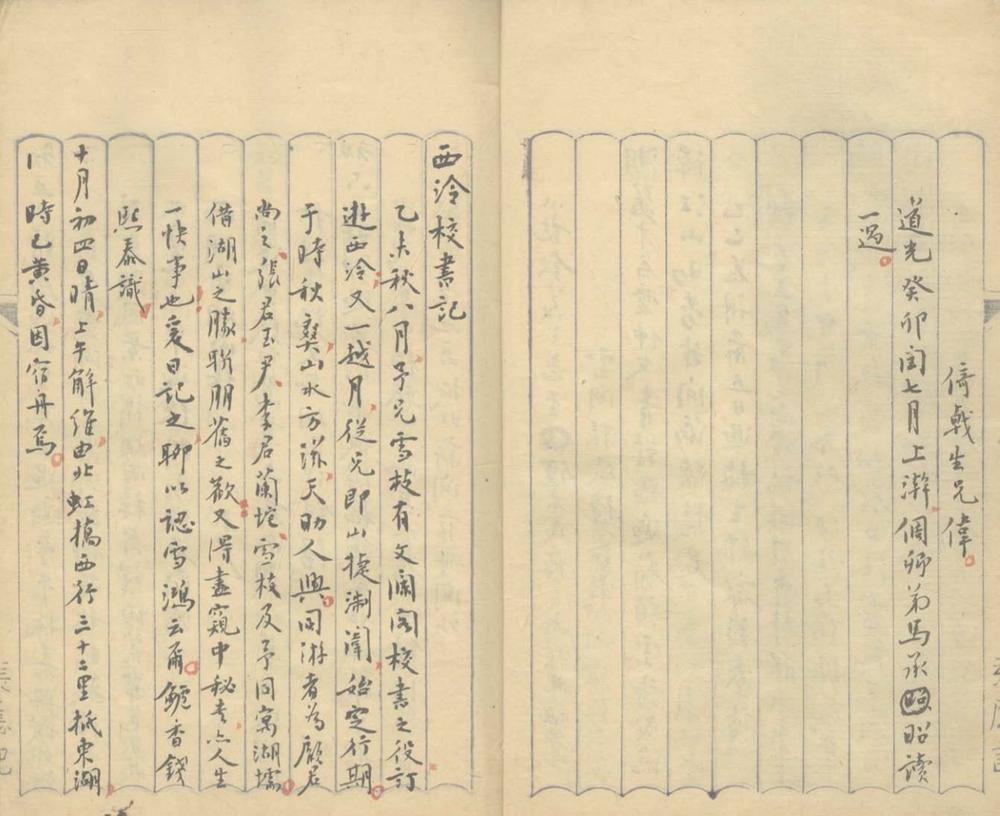 倚戟生兄偉
道光癸卯閏七月上澣倜卿弟馬承昭讀
一過
西泠校書記
乙未秋八月予兄雪枝有文瀾閣校書之役訂
遊西泠又一越月從兄即山捷浙闈始定行期
于時秋爽山水方滌天助人興同游者為顧君
尚之張君玉尹李君蘭垞雪枝及予同寓湖壖
借湖山之勝聯朋舊之歡又得盡窺中秘書亦人生
一快事也爰日記之聊以認雪鴻云爾鱸香錢
熙泰識
十月初四日晴上午解維由北虹橋西行三十二里抵東湖
時已黃昏因宿舟焉